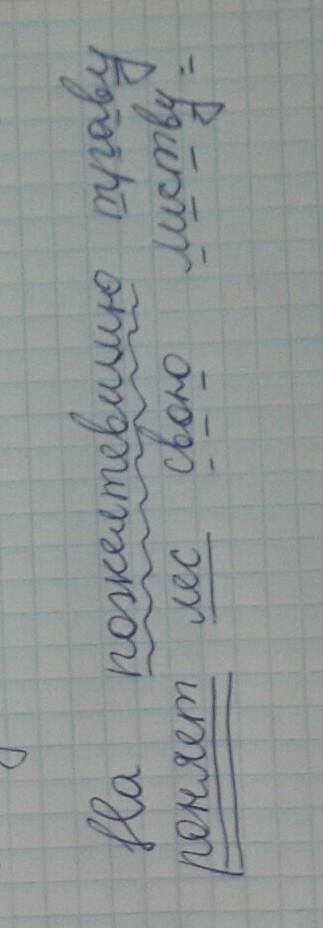 На пожелтевшую траву
роняет лес свою листву